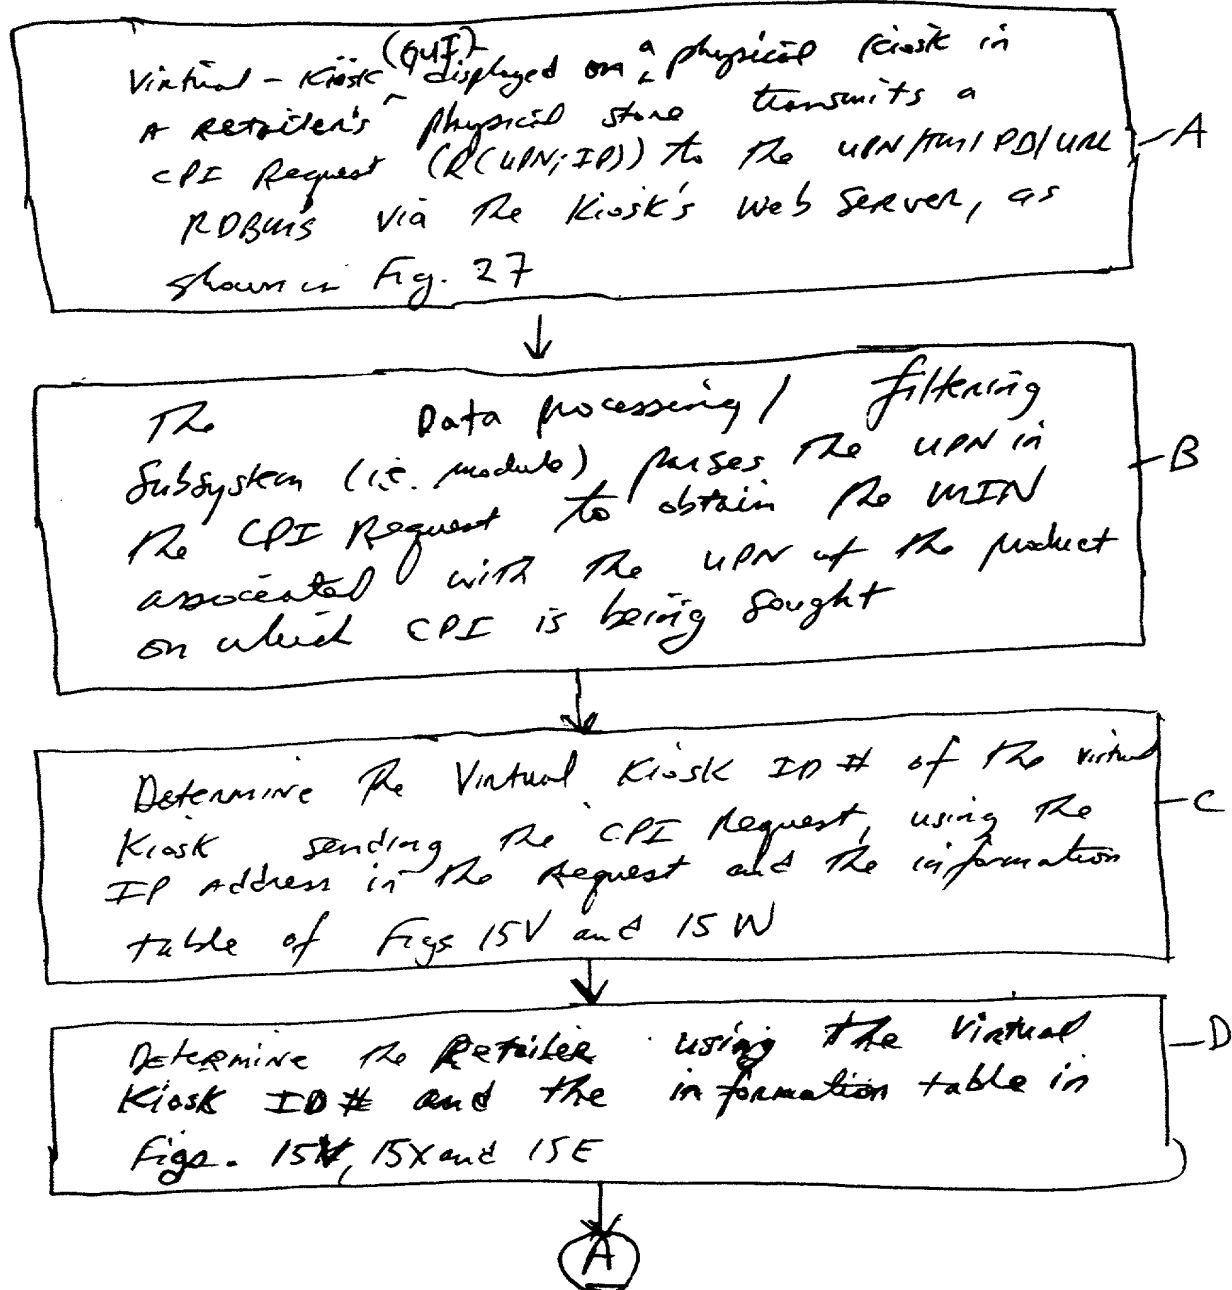 Virtual-Kiosk (GUI) displayed on a physical kiosk in
A Retailer's physical store transmits a
CPI Request (R(UPN; IP)) to the UPN/TM/PD/URL
RDBMS via the Kiosk's Web Server, as
shown in Fig. 27
A
The Data processing/ filtering
Subsystem (i.e. module) parses the UPN in
the CPI Request to obtain the MIN
associated with the UPN of the product
on which CPI is being sought
B
Determine the Virtual Kiosk ID # of the virtual
Kiosk sending the CPI Request, using the
IP Address in the Request and the information
table of Figs 15V and 15W
C
Determine the Retailer using the Virtual
Kiosk ID # and the information table in
Figs. 15X and 15E
D
A